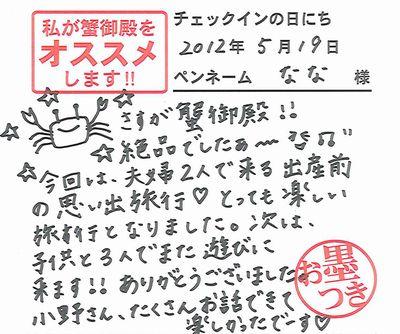 私が蟹御殿を
オススメ
します!!
チェックインの日にち
2012年 5月19日
ペンネーム なな 様
さすが蟹御殿!!
絶品でしたぁ〜
今回は、夫婦2人で来る出産前
の思い出旅行♡とっても楽しい
旅行となりました。次は、
子供と3人でまた遊びに
来ます!!ありがとうございました。
小野さん、たくさんお話できて
楽しかったです♡
お墨つき